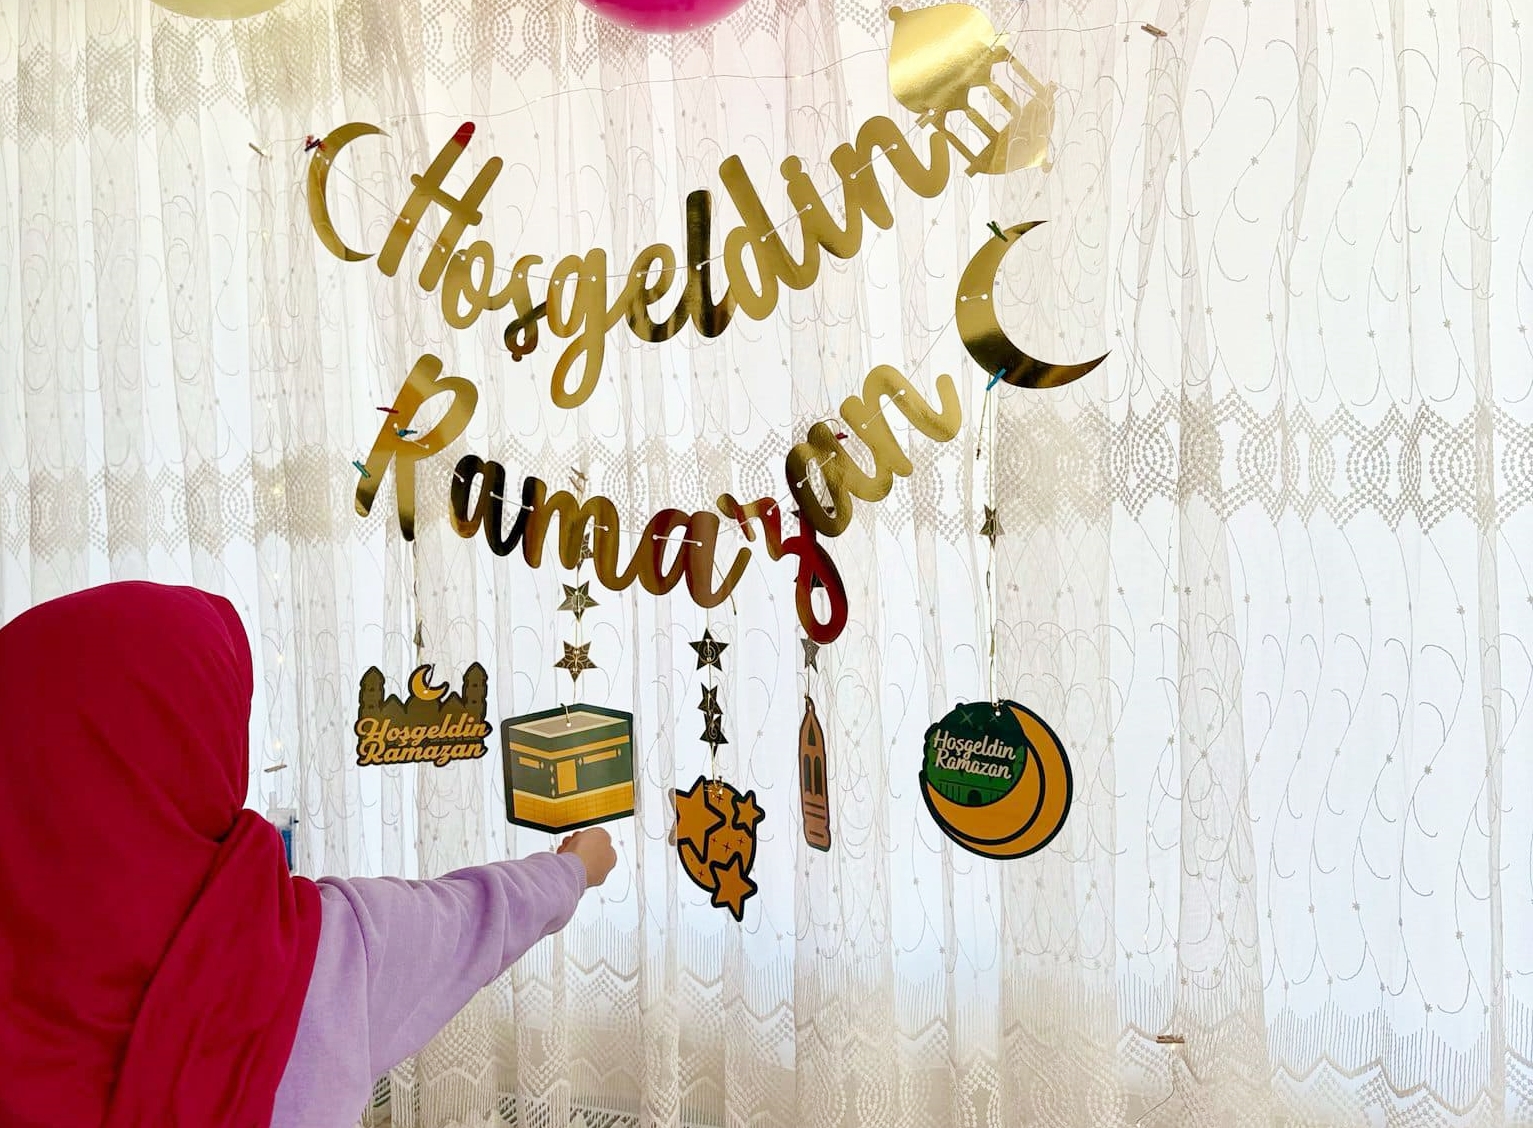 Hoşgeldin
Ramazan
Hoşgeldin
Ramazan
Hoşgeldin
Ramazan